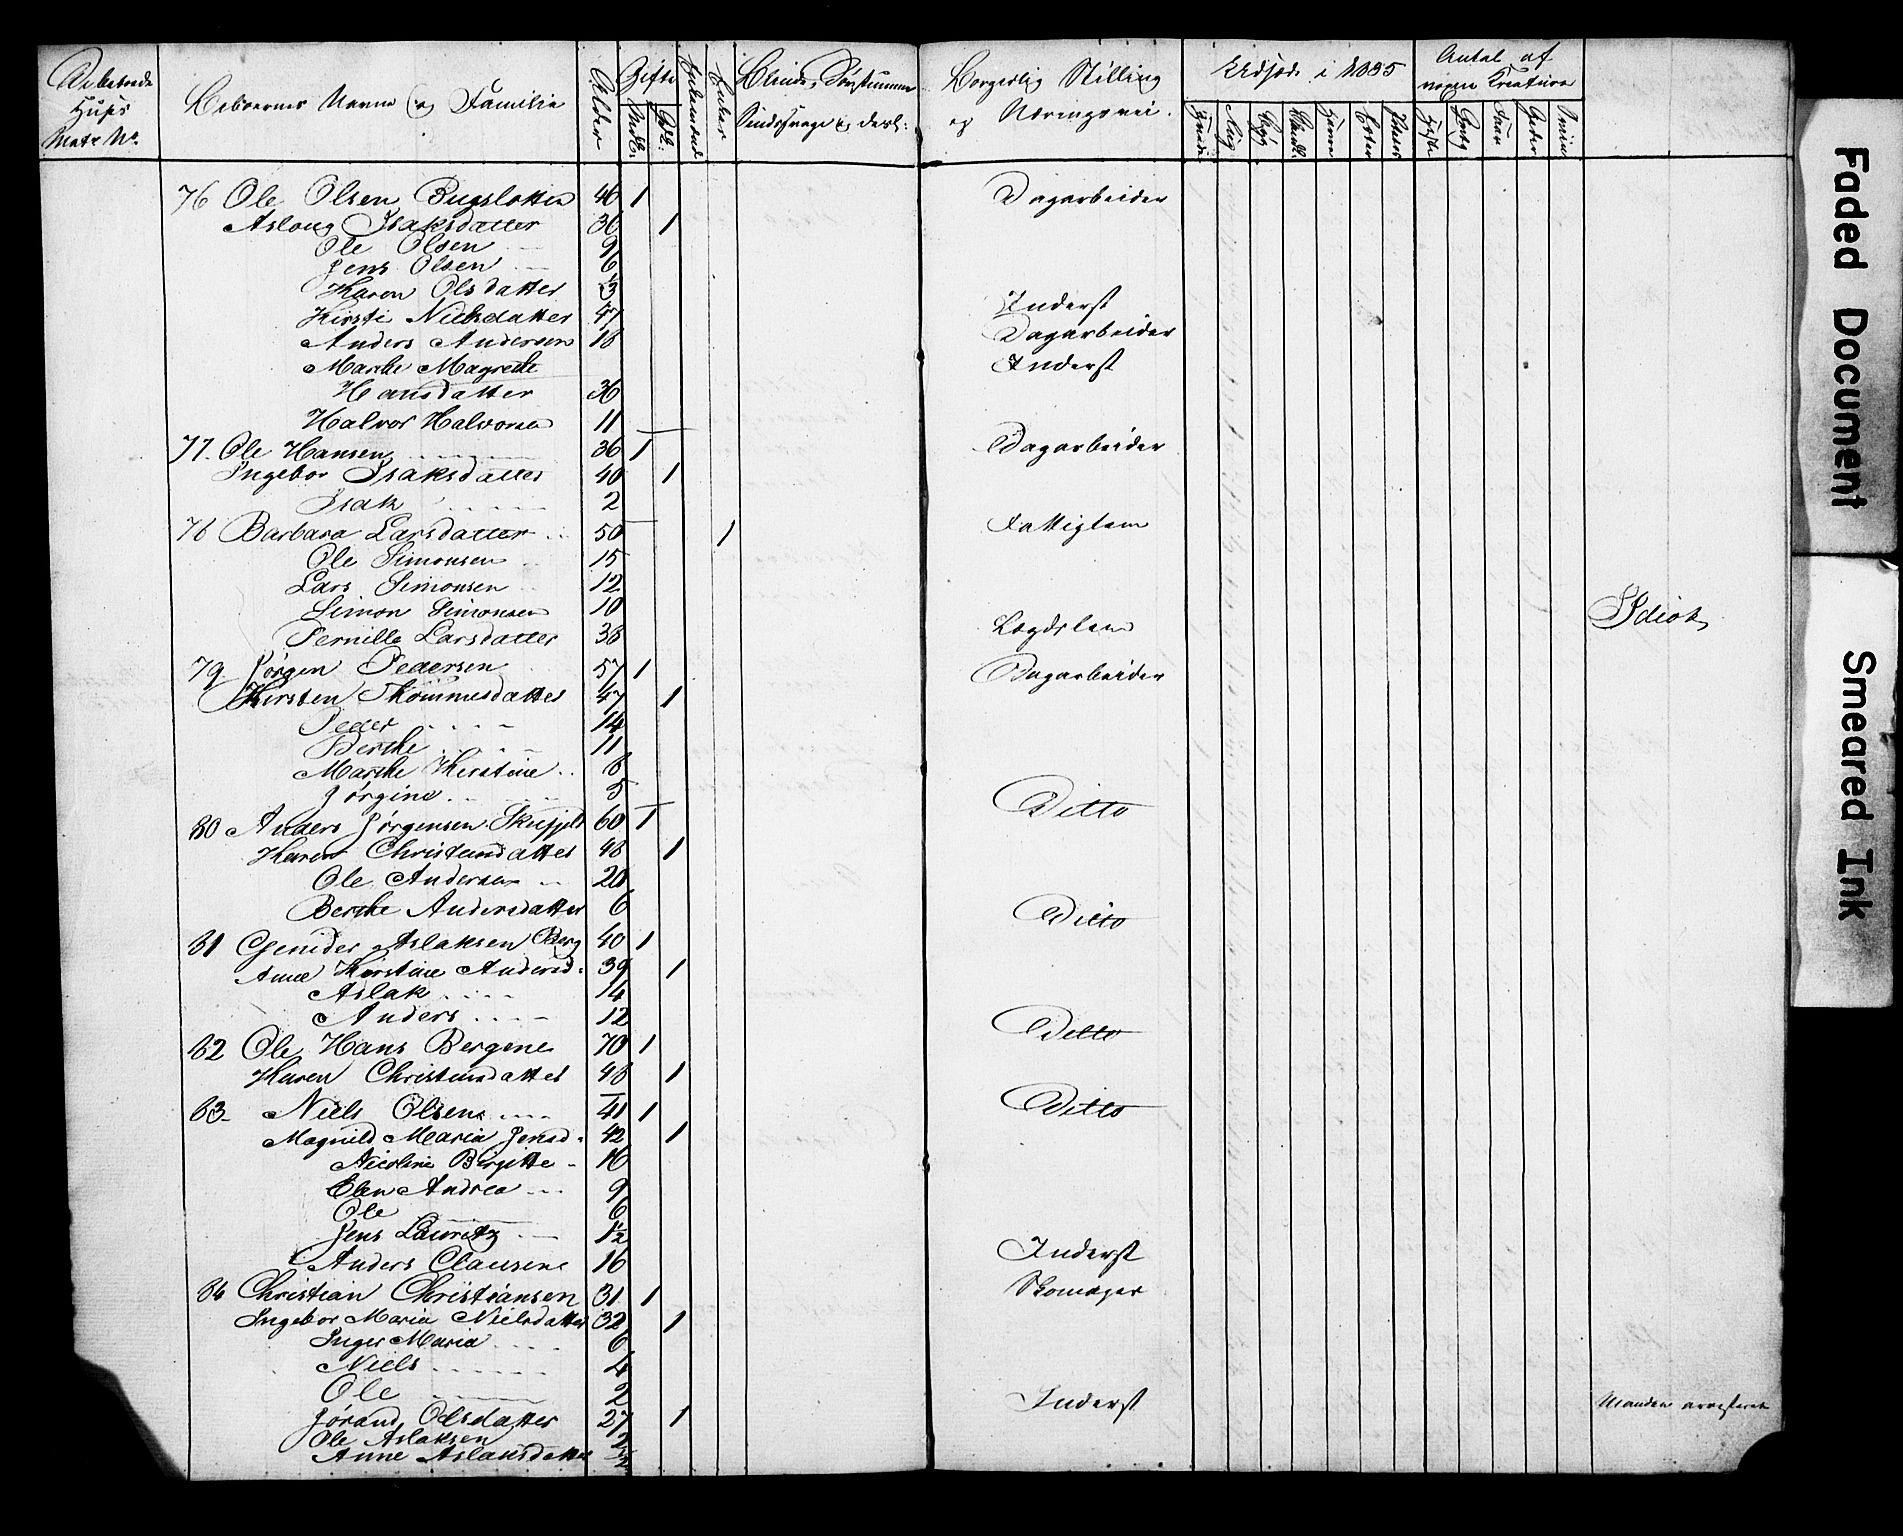 Bebæede Huses Matr No. Beboernes Navne og Familie Alder Gifte Mdk: Qvk: Enker Blinde, Døvstumme Sindssvage & desl: Borgerlig Stilling og Næringsvei. Udsæd i 1835 Hvede Rug Byg Blandk. Havre Erter Poteter Antal af nogen Kreature Heste Qvæg Faar Geder Sviin
76 Ole Olsen 46 1 Dagarbeider
Aslaug Isaksdatter 36 1
Ole Olsen 9
Jens Olsen 6
Karen Olsdatter 3 Inderst
Kirsti Nielsdatter 47 Dagarbeider
Anders Andersen 18 Inderst
Marthe Magrethe
Hansdatter 36
Halvor Halvorsen 11
77. Ole Hansen 36 1 Dagarbeider
Ingebor Isaksdatter 40 1
Isak 2
78 Barbara Larsdatter 50 1 Fattiglem
Ole Simonsen 15
Lars Simonsen 12
Simon Simonsen 10
Pernille Larsdatter 38 Lægdslem Idiot
79 Jörgen Pedersen 57 1 Dagarbeider
Kirsten Thommesdatter 47 1
Peder 14
Berthe 11
Marthe Kirstine 8
Jørgine 5
80 Anders Jørgensen Skifjeld 60 1 Ditto
Karen Christensdatter 48 1
Ole Andersen 20
Berthe Andersdatter 6
81 Gunder Aslaksen Berg 40 1 Ditto
Anne Kirstine Andersd: 39 1
Aslak 14
Anders 12
82 Ole Hans Bergene 70 1 Ditto
Karen Christensdatter 48 1
83 Niels Olsen 41 1 Ditto
Magnild Maria Jensd: 42 1
Nicoline Birgitte 16
Elen Andrea 9
Ole 6
Jens Lauritz 1½
Anders Clausen 16 Inderst
84 Christian Christiansen 31 1 Skomager
Ingebor Maria Nielsdatter 32 1
Inger Maria 6
Niels 4
Ole 2
Jørand Olsdatter 27 1 Inderst Manden arresteret
Ole Aslaksen 2
Anne Aslaksdatter ½
Faded Document
Smeared Ink